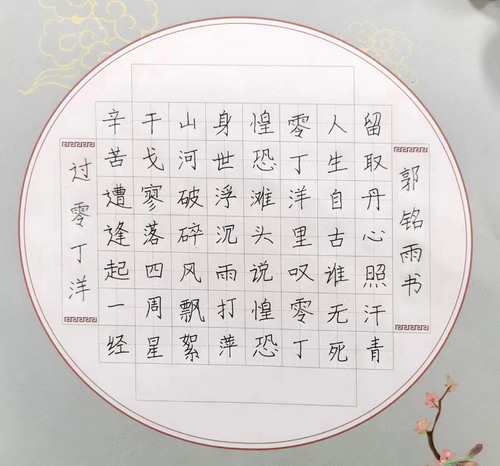 过零丁洋
辛苦遭逢起一经
干戈寥落四周星
山河破碎风飘絮
身世浮沉雨打萍
惶恐滩头说惶恐
零丁洋里叹零丁
人生自古谁无死
留取丹心照汗青
郭铭雨书